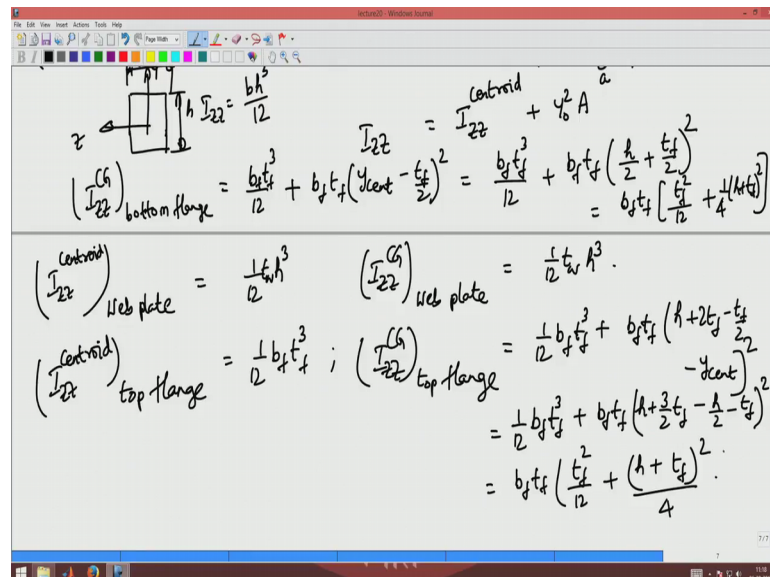 lecture20 - Windows Journal
File Edit View Insert Actions Tools Help
Page Width
B I
h
I_ZZ = bh³/12
z
I_ZZ = I_ZZ^centroid + y₀² A
a
(I_ZZ^CG) bottom flange = b_f t_f³/12 + b_f t_f (y_cent - t_f/2)² = b_f t_f³/12 + b_f t_f (h/2 + t_f/2)²
= b_f t_f [t_f²/12 + 1/4 (h+t_f)²]
(I_ZZ^centroid) web plate = 1/12 t_w h³ (I_ZZ^CG) web plate = 1/12 t_w h³.
(I_ZZ^centroid) top flange = 1/12 b_f t_f³ ; (I_ZZ^CG) top flange = 1/12 b_f t_f³ + b_f t_f (h + 2t_f - t_f/2 - y_cent)²
= 1/12 b_f t_f³ + b_f t_f (h + 3/2 t_f - h/2 - t_f)²
= b_f t_f (t_f²/12 + (h + t_f)²/4 .
7/7
7
11:18